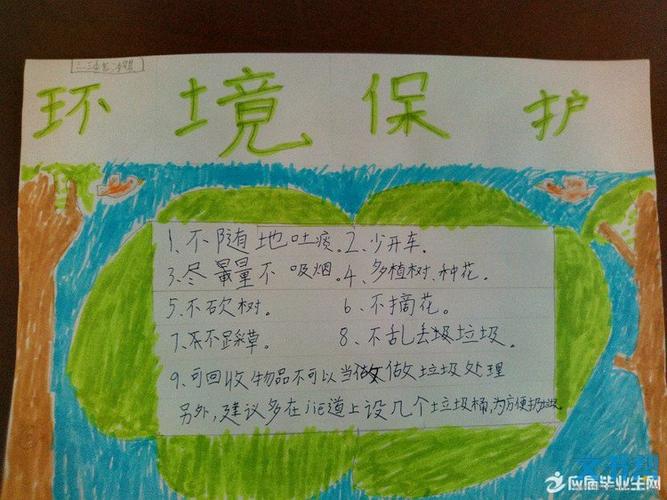 环境保护
1、不随地吐痰。2、少开车。
3、尽量不吸烟。4、多植树、种花。
5、不砍树。 6、不摘花。
7、不踩草。 8、不乱丢圾垃圾。
9、可回收物品不可以当做垃圾处理
另外,建议多在jie道上设几个垃圾桶,为方便扔垃圾
应届毕业生网